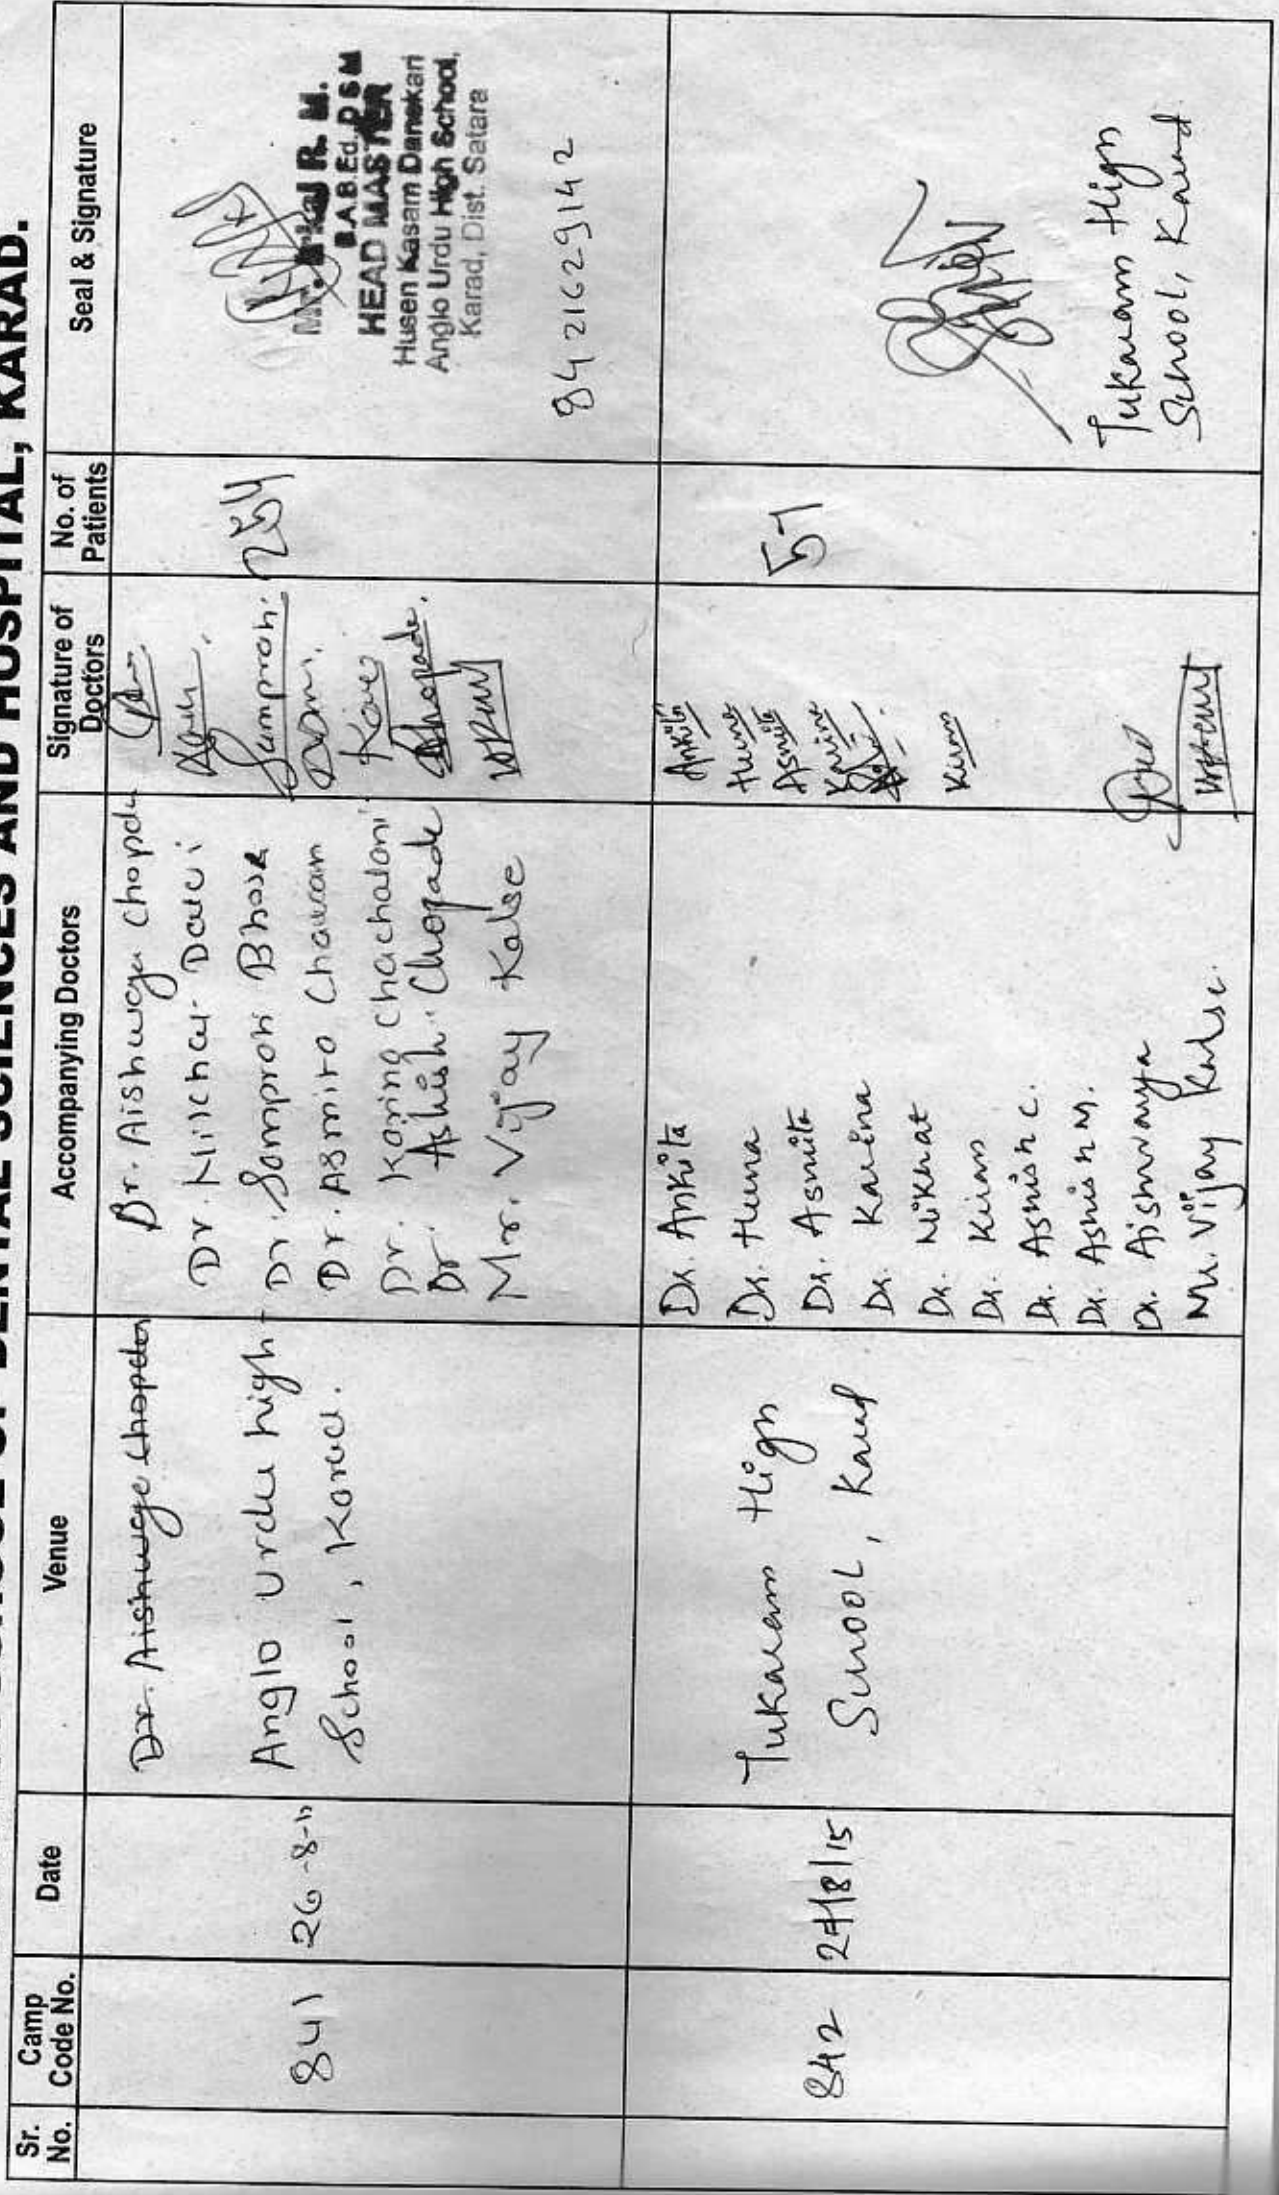 OF DENTAL SCIENCES AND HOSPITAL, KARAD.
Sr. No.
Camp Code No.
Date
Venue
Accompanying Doctors
Signature of Doctors
No. of Patients
Seal & Signature
841
26-8-11
Dr. Aishwaya Chopdar
Anglo Urdu high
School, Karad.
Dr. Aishwaya Chopda
Dr. Nilkhat Dalvi
Dr. Samprati Bhosk
Dr. Asmita Chavan
Dr. Karina Chachalani
Dr. Ashish Chopade
Mr. Vijay Kalse
Samprati
Chopade.
254
HEAD MASTER
Husen Kasam Danekari
Anglo Urdu High School,
Karad, Dist. Satara
8421629142
842
27/8/15
Tukaram High
School, Karad
Dr. Ankita
Dr. Huma
Dr. Asmita
Dr. Karina
Dr. Nikhat
Dr. Kiran
Dr. Ashish C.
Dr. Ashish M.
Dr. Aishwarya
Mr. Vijay Kalse.
Ankita
Huma
Asmita
Karina
Kiran
57
Tukaram High
School, Karad